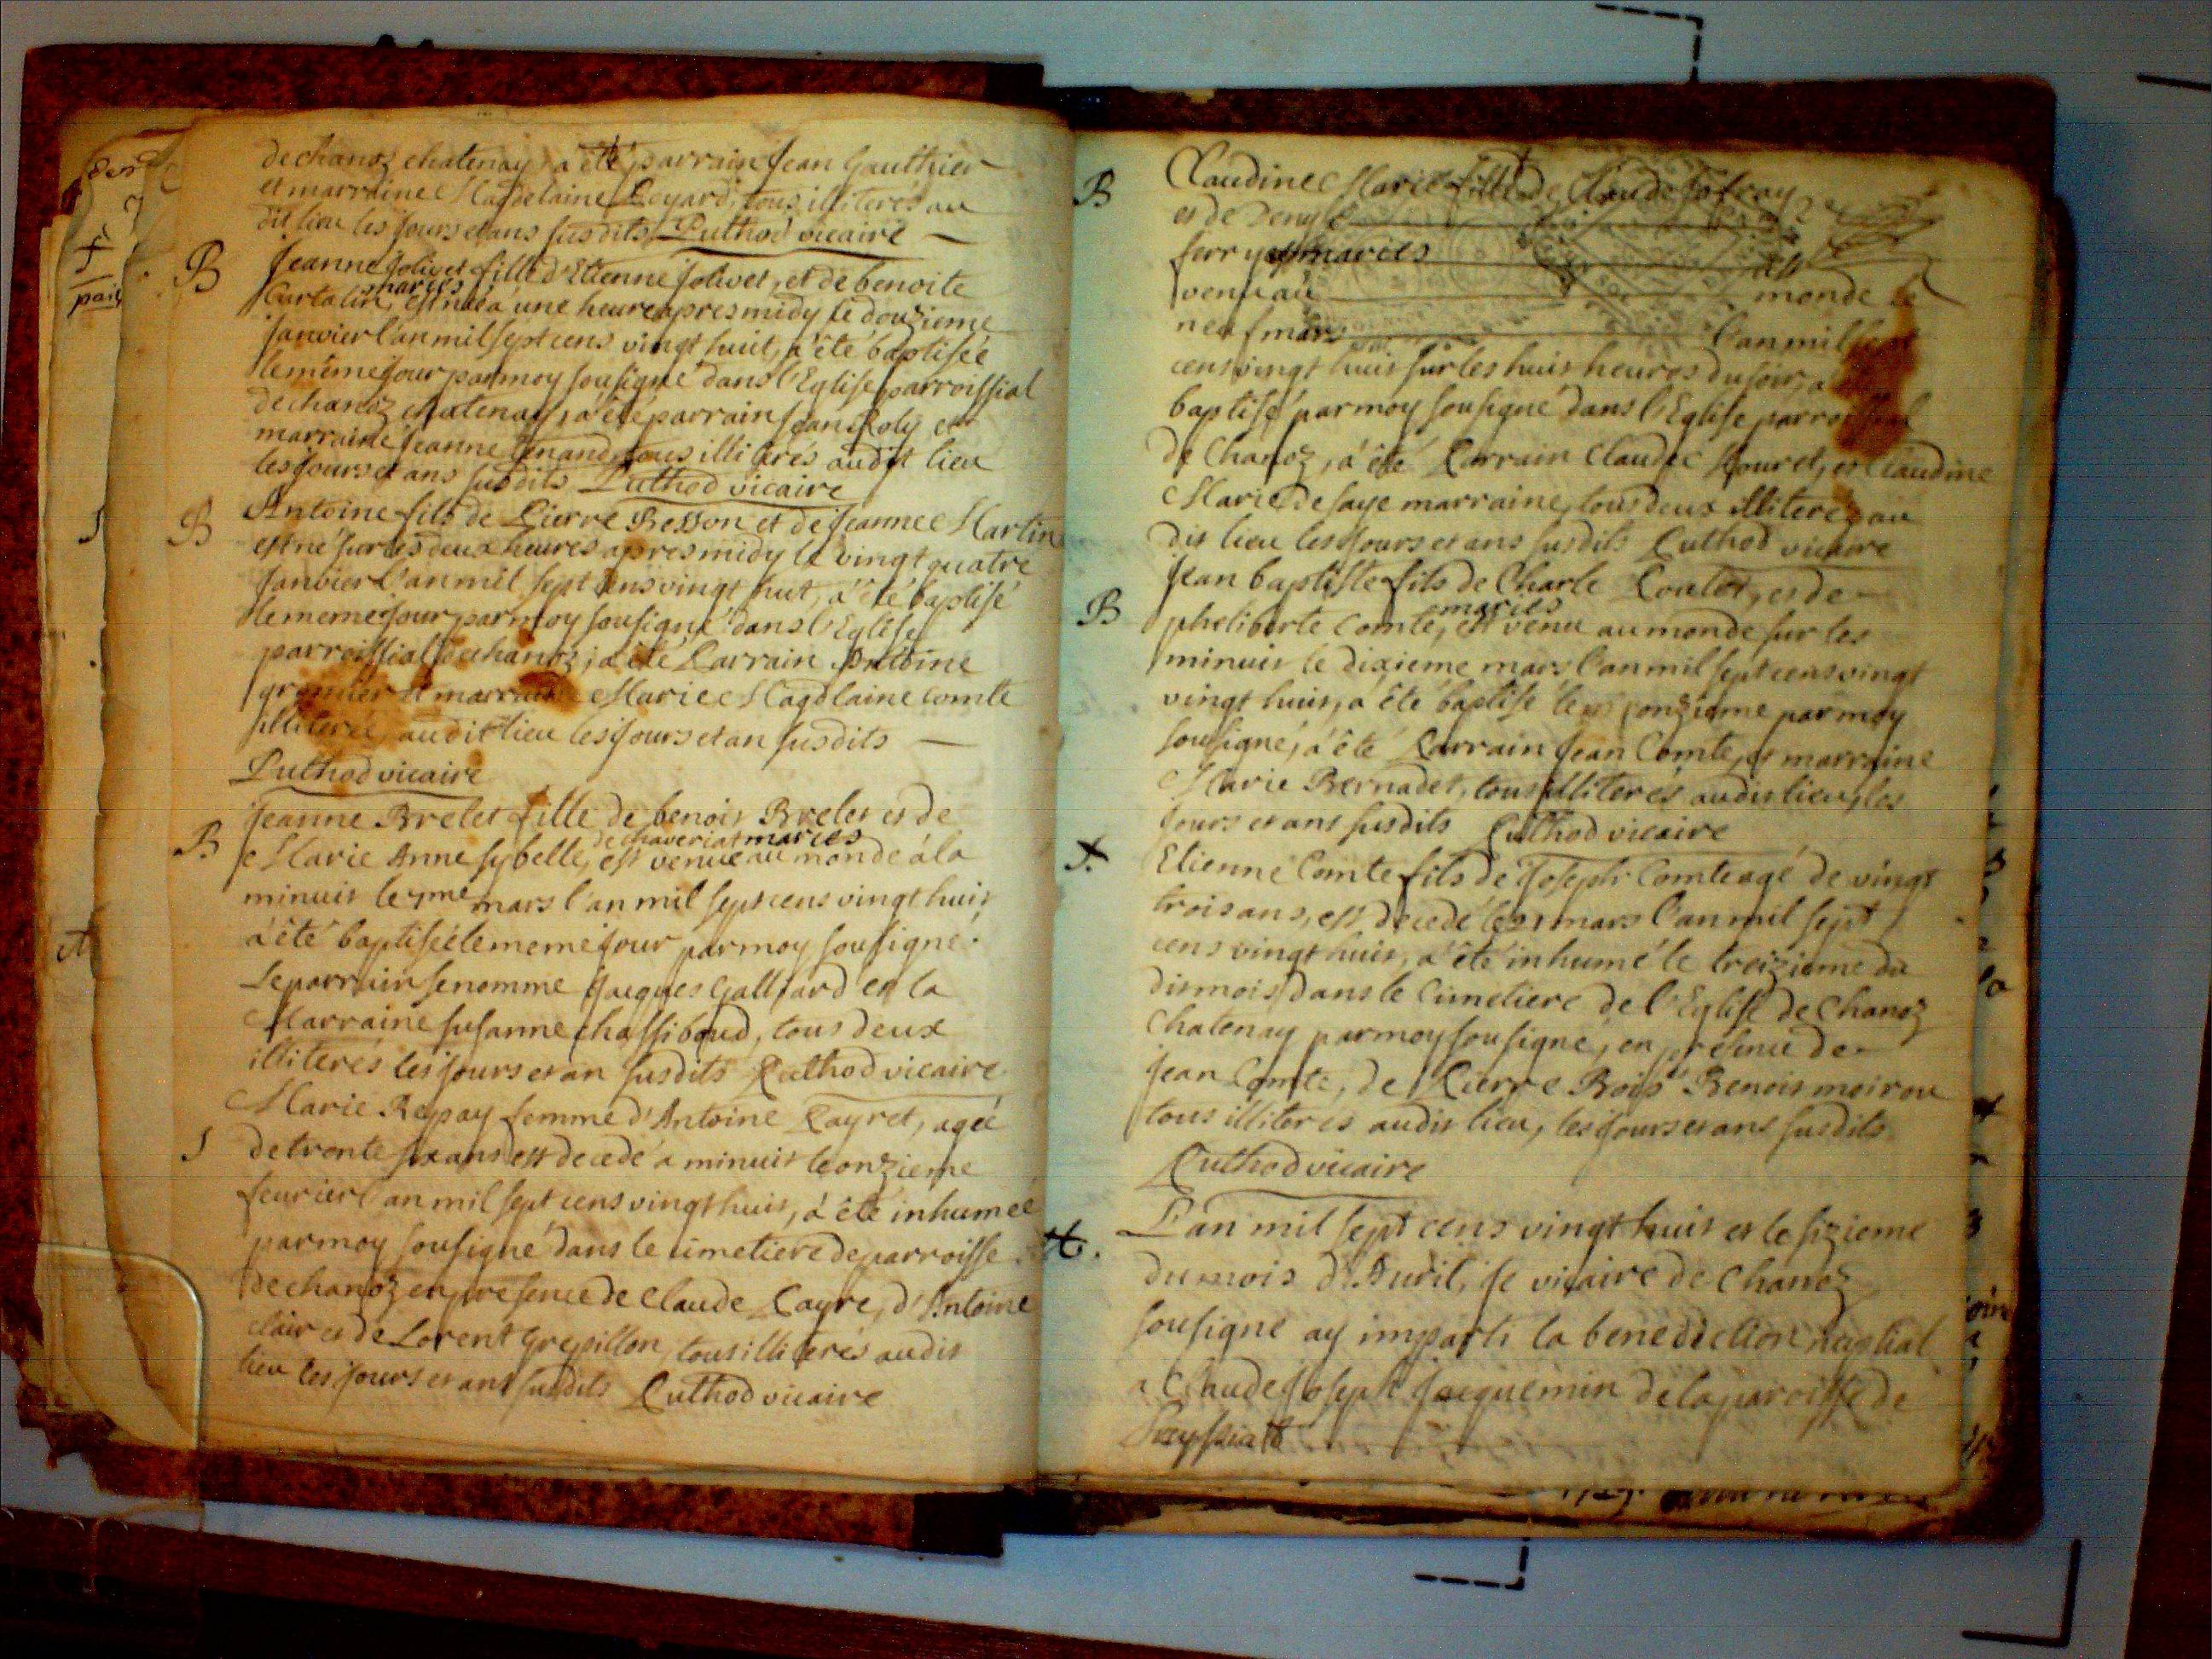 de chanoz chatenay, a été parrain Jean Gauthier
et marraine Magdelaine Poyard, tous illiterés au
dit lieu les jours et ans susdits Puthod vicaire
B
Jeanne Jolivet fille d'Etienne Jolivet, et de benoite
mariés
Curtalin, est née a une heure apres midy le douzieme
janvier l'an mil sept cens vingt huit, a été baptisée
le même jour par moy sousigné dans l'Eglise parroissial
de chanoz chatenay, a été parrain Jean Roly et
marraine Jeanne tenand, tous illiterés audit lieu
les jours et ans susdits Puthod vicaire
B
Antoine fils de Pierre Besson et de Jeanne Martin
est né sur les deux heures apres midy le vingt quatre
Janvier l'an mil sept cens vingt huit, a été baptisé
le meme jour par moy sousigné dans l'Eglise
parroissial de chanoz, a été Parrain Antoine
et marraine Marie Magdlaine Comte
illiteré, audit lieu les jours et an susdits
Puthod vicaire
B
Jeanne Brelet fille de benoit Brelet et de
de chaveriat mariés
Marie Anne sybelle, est venue au monde á la
minuit le 7me mars l'an mil sept cens vingt huit
a été baptisée le meme jour par moy sousigné.
Le parrain se nomme Jacques Galliard et la
Marraine susanne chassiboud, tous deux
illiterés les jours et an susdits Puthod vicaire
S
Marie Repay femme d'Antoine Payret, ageé
de trente six ans est decedé a minuit le onzieme
feurier l'an mil sept cens vingt huit, a été inhumeé
par moy sousigné dans le cimetiere de parroisse
de chanoz en presence de Claude Payre, d'Antoine
clair et de Lorent Grepillon, tous illiterés audit
lieu les jours et ans susdits Puthod vicaire
B
Claudine Marie fille de Claude Jofray
et de Deny
ferry mariés est
venu au monde le
neuf mars l'an mil sept
cens vingt huit sur les huit heures du soir, a
baptisé par moy sousigné dans l'Eglise parroissial
de Chanoz, a été Parrain Claude Mouret, et Claudine
Marie de saye marraine, tous deux illiterés au
dit lieu les jours et ans susdits Puthod vicaire
B
Jean baptiste fils de Charle Poulet, et de
mariés
pheliberte Comte, est venu au monde sur les
minuit le dixieme mars l'an mil sept cens vingt
vingt huit, a été baptisé le onzieme par moy
sousigné, a été Parrain Jean Comte, et marraine
Marie Bernadet, tous illiterés audit lieu, les
jours et ans susdits Puthod vicaire
S.
Etienne Comte fils de Joseph Comte agé de vingt
trois ans, est decedé le mars l'an mil sept
cens vingt huit, a été inhumé le treizieme du
dit mois dans le Cimetiere de l'Eglise de Chanoz
Chatenay par moy sousigné, en presence de
Jean Comte, de Pierre Bois Benoit moirou
tous illiterés audit lieu, les jours et ans susdits
Puthod vicaire
L'an mil sept cens vingt huit et le sizieme
du mois d'Auril, je vicaire de Chanoz
sousigné ay imparti la benediction nuptial
a Claude Joseph Jacquemin de la paroisse de